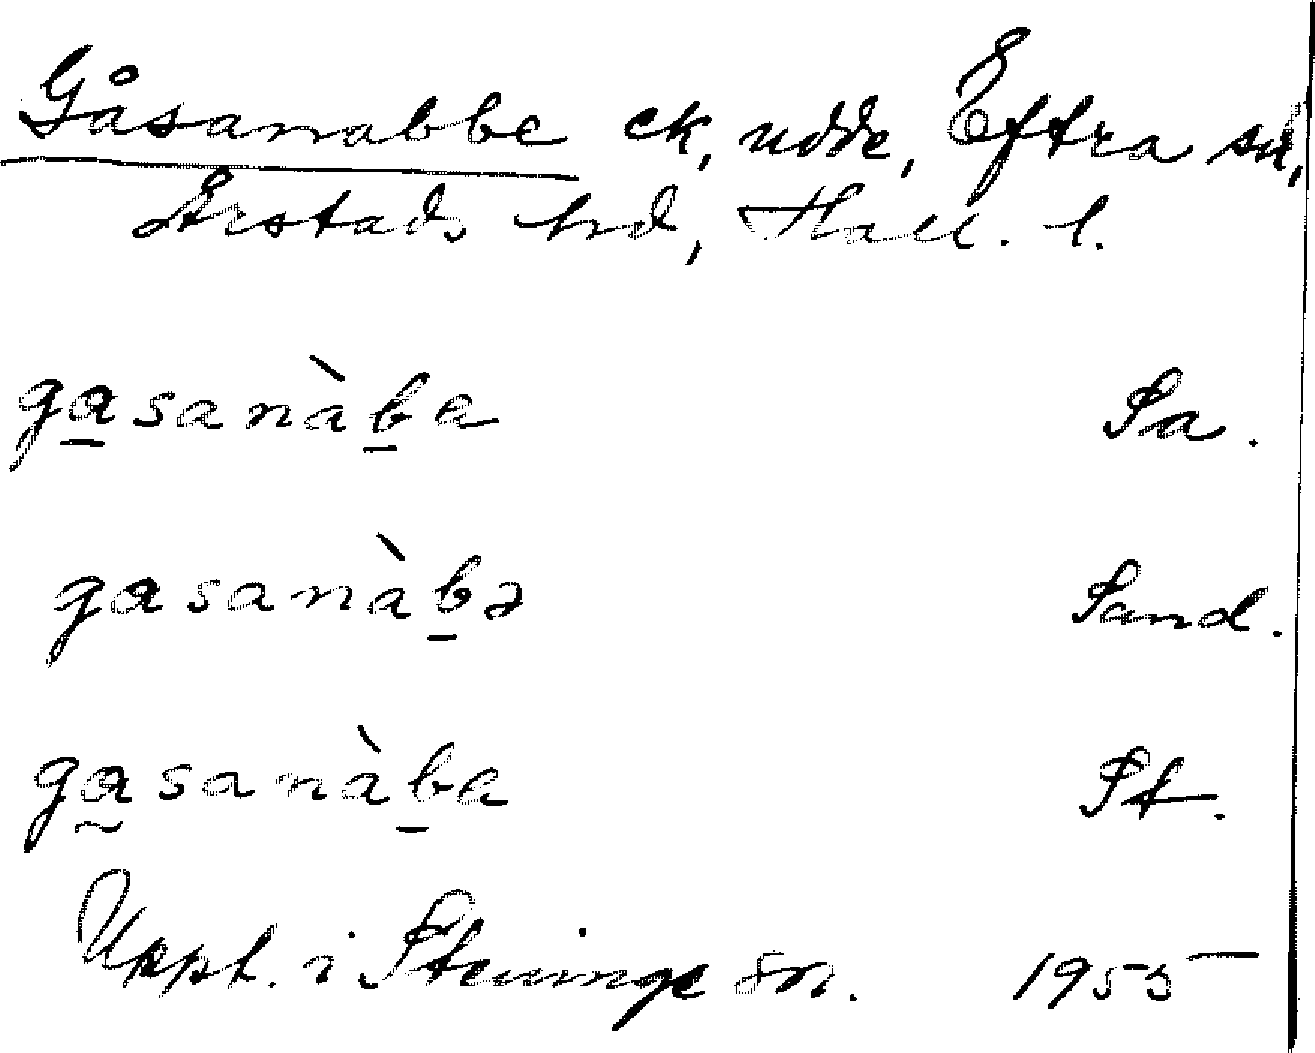 Gåsanabbe ek, udde, Eftra sn,
Årstads hrd, Hall. l.
gasanàba Sa.
gasanàbə Sand.
gasanàba St.
Uppt. i Steninge sn. 1955